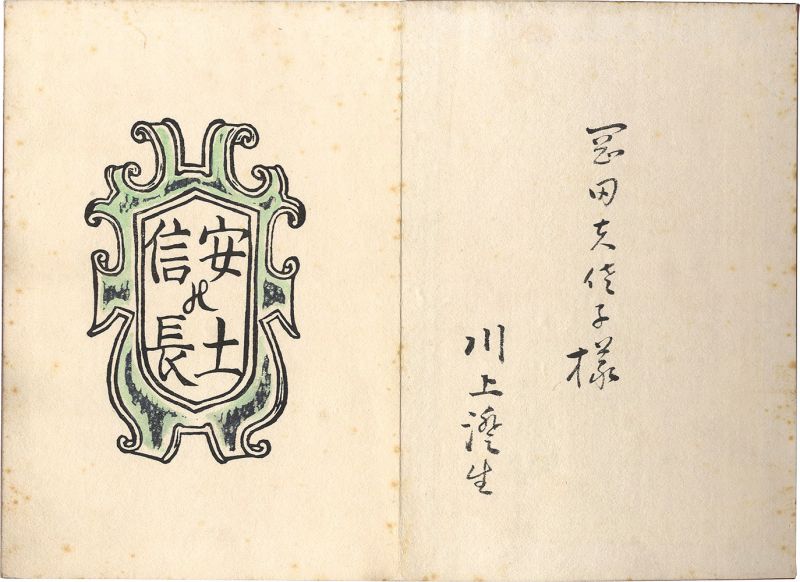 岡田 佐子様
川上澄生
安土
の
信長